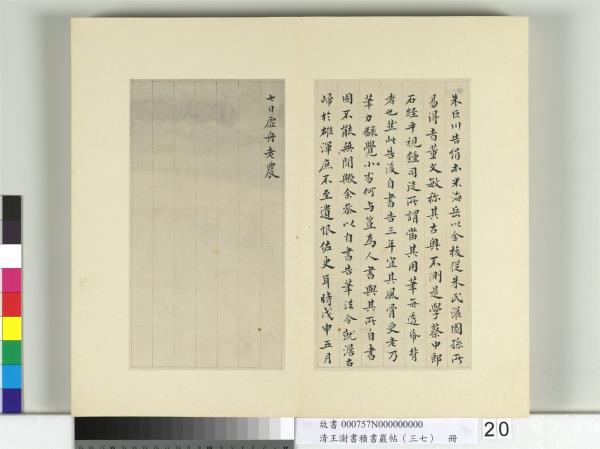 朱巨川告絹本米海岳以金梭從朱氏灌園孫所
易得者董文敏称其古奧不測是學蔡中郎
石經平視鍾司徒所謂當其用筆每透紙背
者也並此告後自書告三年宜其風骨更老乃
筆力猶覺小劣何與豈為人書與其所自書
固不能無閒歟余參以自書告筆法令就澹古
歸於雄渾庶不至遺恨佐史耳時戊申五月
七日虛舟老農
故書 000757N000000000
清王澍書積書巖帖（三七） 冊
20